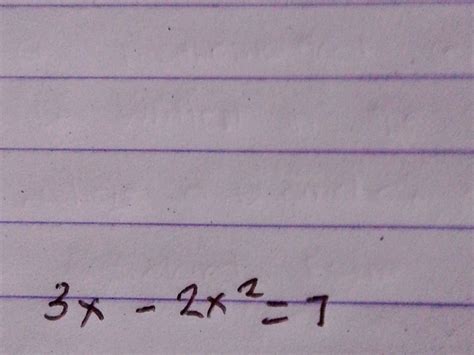 3x - 2x² = 7